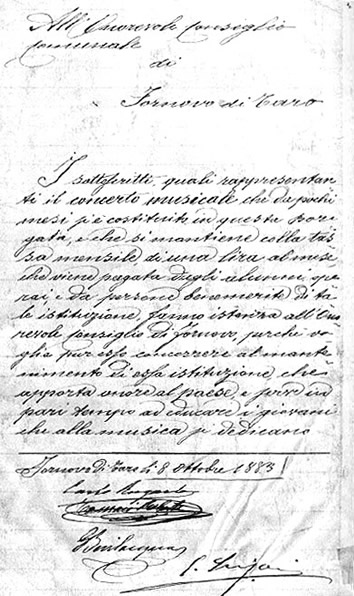 All' Onorevole Consiglio
Comunale
di
Fornovo di Taro
I sottoscritti, quali rappresentan
ti il concerto musicale che da pochi
mesi s'è costituito in questa bor
gata, e che si mantiene colla tas
sa mensile di una lira al mese
che viene pagata dagli alunni, ope
rai, e da persone benemerite di ta
le istituzione, fanno istanza all' Ono
revole Consiglio di Fornovo, perchè vo
glia pur esso concorrere al mante
nimento di essa istituzione, che
apporta onore al paese, e serve in
pari tempo ad educare i giovani
che alla musica si dedicano
Fornovo di Taro li 8 Ottobre 1883
Carlo
Bevilacqua